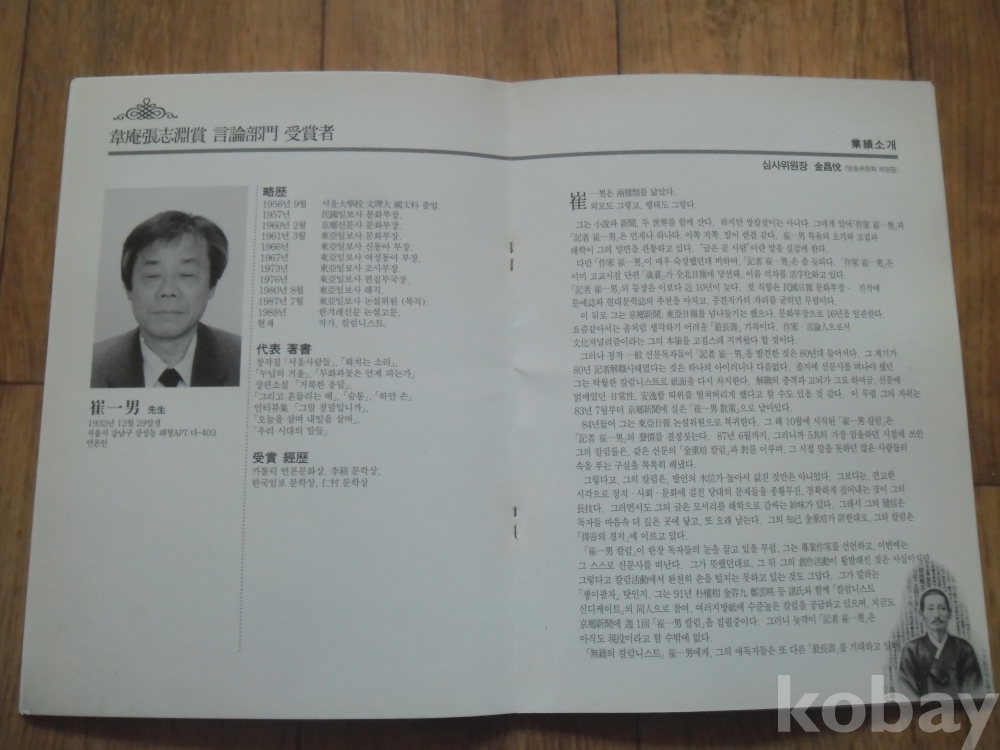 韋庵張志淵賞 言論部門 受賞者
略歷
1956년 9월 서울大學校 文理大 國文科 졸업.
1957년 民國日報社 문화부장.
1960년 2월 京鄕신문사 문화부장.
1961년 3월 東亞일보사 문화부장.
1966년 東亞일보사 신동아 부장.
1967년 東亞일보사 여성동아 부장.
1973년 東亞일보사 조사부장.
1976년 東亞일보사 편집부국장.
1980년 8월 東亞일보사 해직.
1987년 7월 東亞일보사 논설위원 (복직).
1988년 한겨레신문 논설고문.
현재 작가, 칼럼니스트.
代表 著書
창작집「서울사람들」,「홰치는 소리」,
「누님의 겨울」,「무화과꽃은 언제 피는가」
장편소설「거룩한 응달」,
「그리고 흔들리는 배」,「숨통」,「하얀 손」
인터뷰집「그말 정말입니까」,
「오늘을 살며 내일을 살며」,
「우리 시대의 말들」
受賞 經歷
카톨릭 언론문화상, 李箱 문학상,
한국일보 문학상, 仁村 문학상
崔一男 先生
1932년 12월 29일생
서울시 강남구 삼성동 해청APT 다-403
언론인
業績소개
심사위원장 金昌悅
崔一男은 兩棲類를 닮았다.
외모도 그렇고, 행태도 그렇다.
그는 小說과 新聞, 두 世界를 함께 산다. 하지만 쌍칼잡이는 아니다. 그에게 있어「作家 崔一男」과
「記者 崔一男」은 언제나 하나다. 이쪽 저쪽, 발이 한결 같다. 崔一男 특유의 오기와 고집과
해학이 그의 양면을 관통하고 있다. 「글은 곧 사람」이란 말을 실감케 한다.
다만「作家 崔一男」이 매우 숙성했던데 비하여,「記者 崔一男」은 좀 늦되다.「作家 崔一男」은
이미 고교시절 단편「歲暮」가 全北日報에 당선돼, 이름 석자를 活字化하고 있다.
「記者 崔一男」의 등장은 이보다 近 10년이 늦다. 첫 직함은 民國日報 문화부장· 진작에
문예誌와 현대문학誌의 추천을 마치고, 중견작가의 자리를 굳히던 무렵이다.
이 뒤로 그는 京鄕新聞, 東亞日報를 넘나들기는 했으나, 문화부장으로 16년을 일관한다.
요즘같아서는 좀처럼 생각하기 어려운「最長壽」기록이다. 作家·言論人으로서
文化저널리즘이라는 그의 本領을 고집스레 지켜왔다 할 것이다.
그러나 정작 一般 신문독자들이「記者 崔一男」을 발견한 것은 80년대 들어서다. 그 계기가
80년 記者解職사태였다는 것은 하나의 아이러니나 다름없다. 졸지에 신문사를 떠나야 했던
그는 탁월한 칼럼니스트로 紙面을 다시 차지한다. 解職의 충격과 고뇌가 그로 하여금, 신문에
얽매였던 日常性, 安逸함 따위를 떨쳐버리게 했다고 할 수도 있을 것 같다. 이 무렵 그의 자취는
83년 7월부터 京鄕新聞에 실은「崔一男 散策」으로 남아있다.
84년들어 그는 東亞日報 논설위원으로 복귀한다. 그 해 10월에 시작된「崔一男 칼럼」은
「記者 崔一男」의 聲價를 결정짓는다. 87년 6월까지, 그러니까 5共의 가장 암울하던 시절에 쓰인
그의 칼럼들은, 같은 신문의「金重培 칼럼」과 對를 이루며, 그 시절 말을 못하던 많은 사람들의
속을 푸는 구실을 톡톡히 해냈다.
그렇다고, 그의 칼럼은, 발언의 水位가 높아서 값진 것만은 아니었다. 그보다는, 견고한
시각으로 정치·사회·문화에 걸친 당대의 문제들을 종횡무진, 정확하게 짚어내는 것이 그의
長技다. 그러면서도 그의 글은 모서리를 해학으로 감싸는 妙味가 있다. 그래서 그의 發信은
독자들 마음속 더 깊은 곳에 닿고, 또 오래 남는다. 그의 知己 金重培가 評한대로, 그의 칼럼은
「得音의 경지」에 이르고 있다.
「崔一男 칼럼」이 한창 독자들의 눈을 끌고 있을 무렵, 그는 專業作家를 선언하고, 이번에는
그 스스로 신문사를 떠난다. 그가 뜻했던대로, 그 뒤 그의 創作活動이 활발해진 것은 사실이지만
그렇다고 칼럼活動에서 완전히 손을 털지는 못하고 있는 것도 그답다. 그가 말하는
「쟁이팔자」탓인지, 그는 91년 朴權相 金容九 鄭雲暎 등 諸氏와 함께「칼럼니스트
신디케이트」의 同人으로 참여, 여러지방紙에 수준높은 칼럼을 공급하고 있으며, 지금도
京鄕新聞에 週 1回「崔一男 칼럼」을 집필중이다. 그러니 늦깍이「記者 崔一男」은
아직도 現役이라고 할 수밖에 없다.
「無籍의 칼럼니스트」崔一男에게, 그의 애독자들은 또 다른「最長壽」를 기대하고 있
kobay